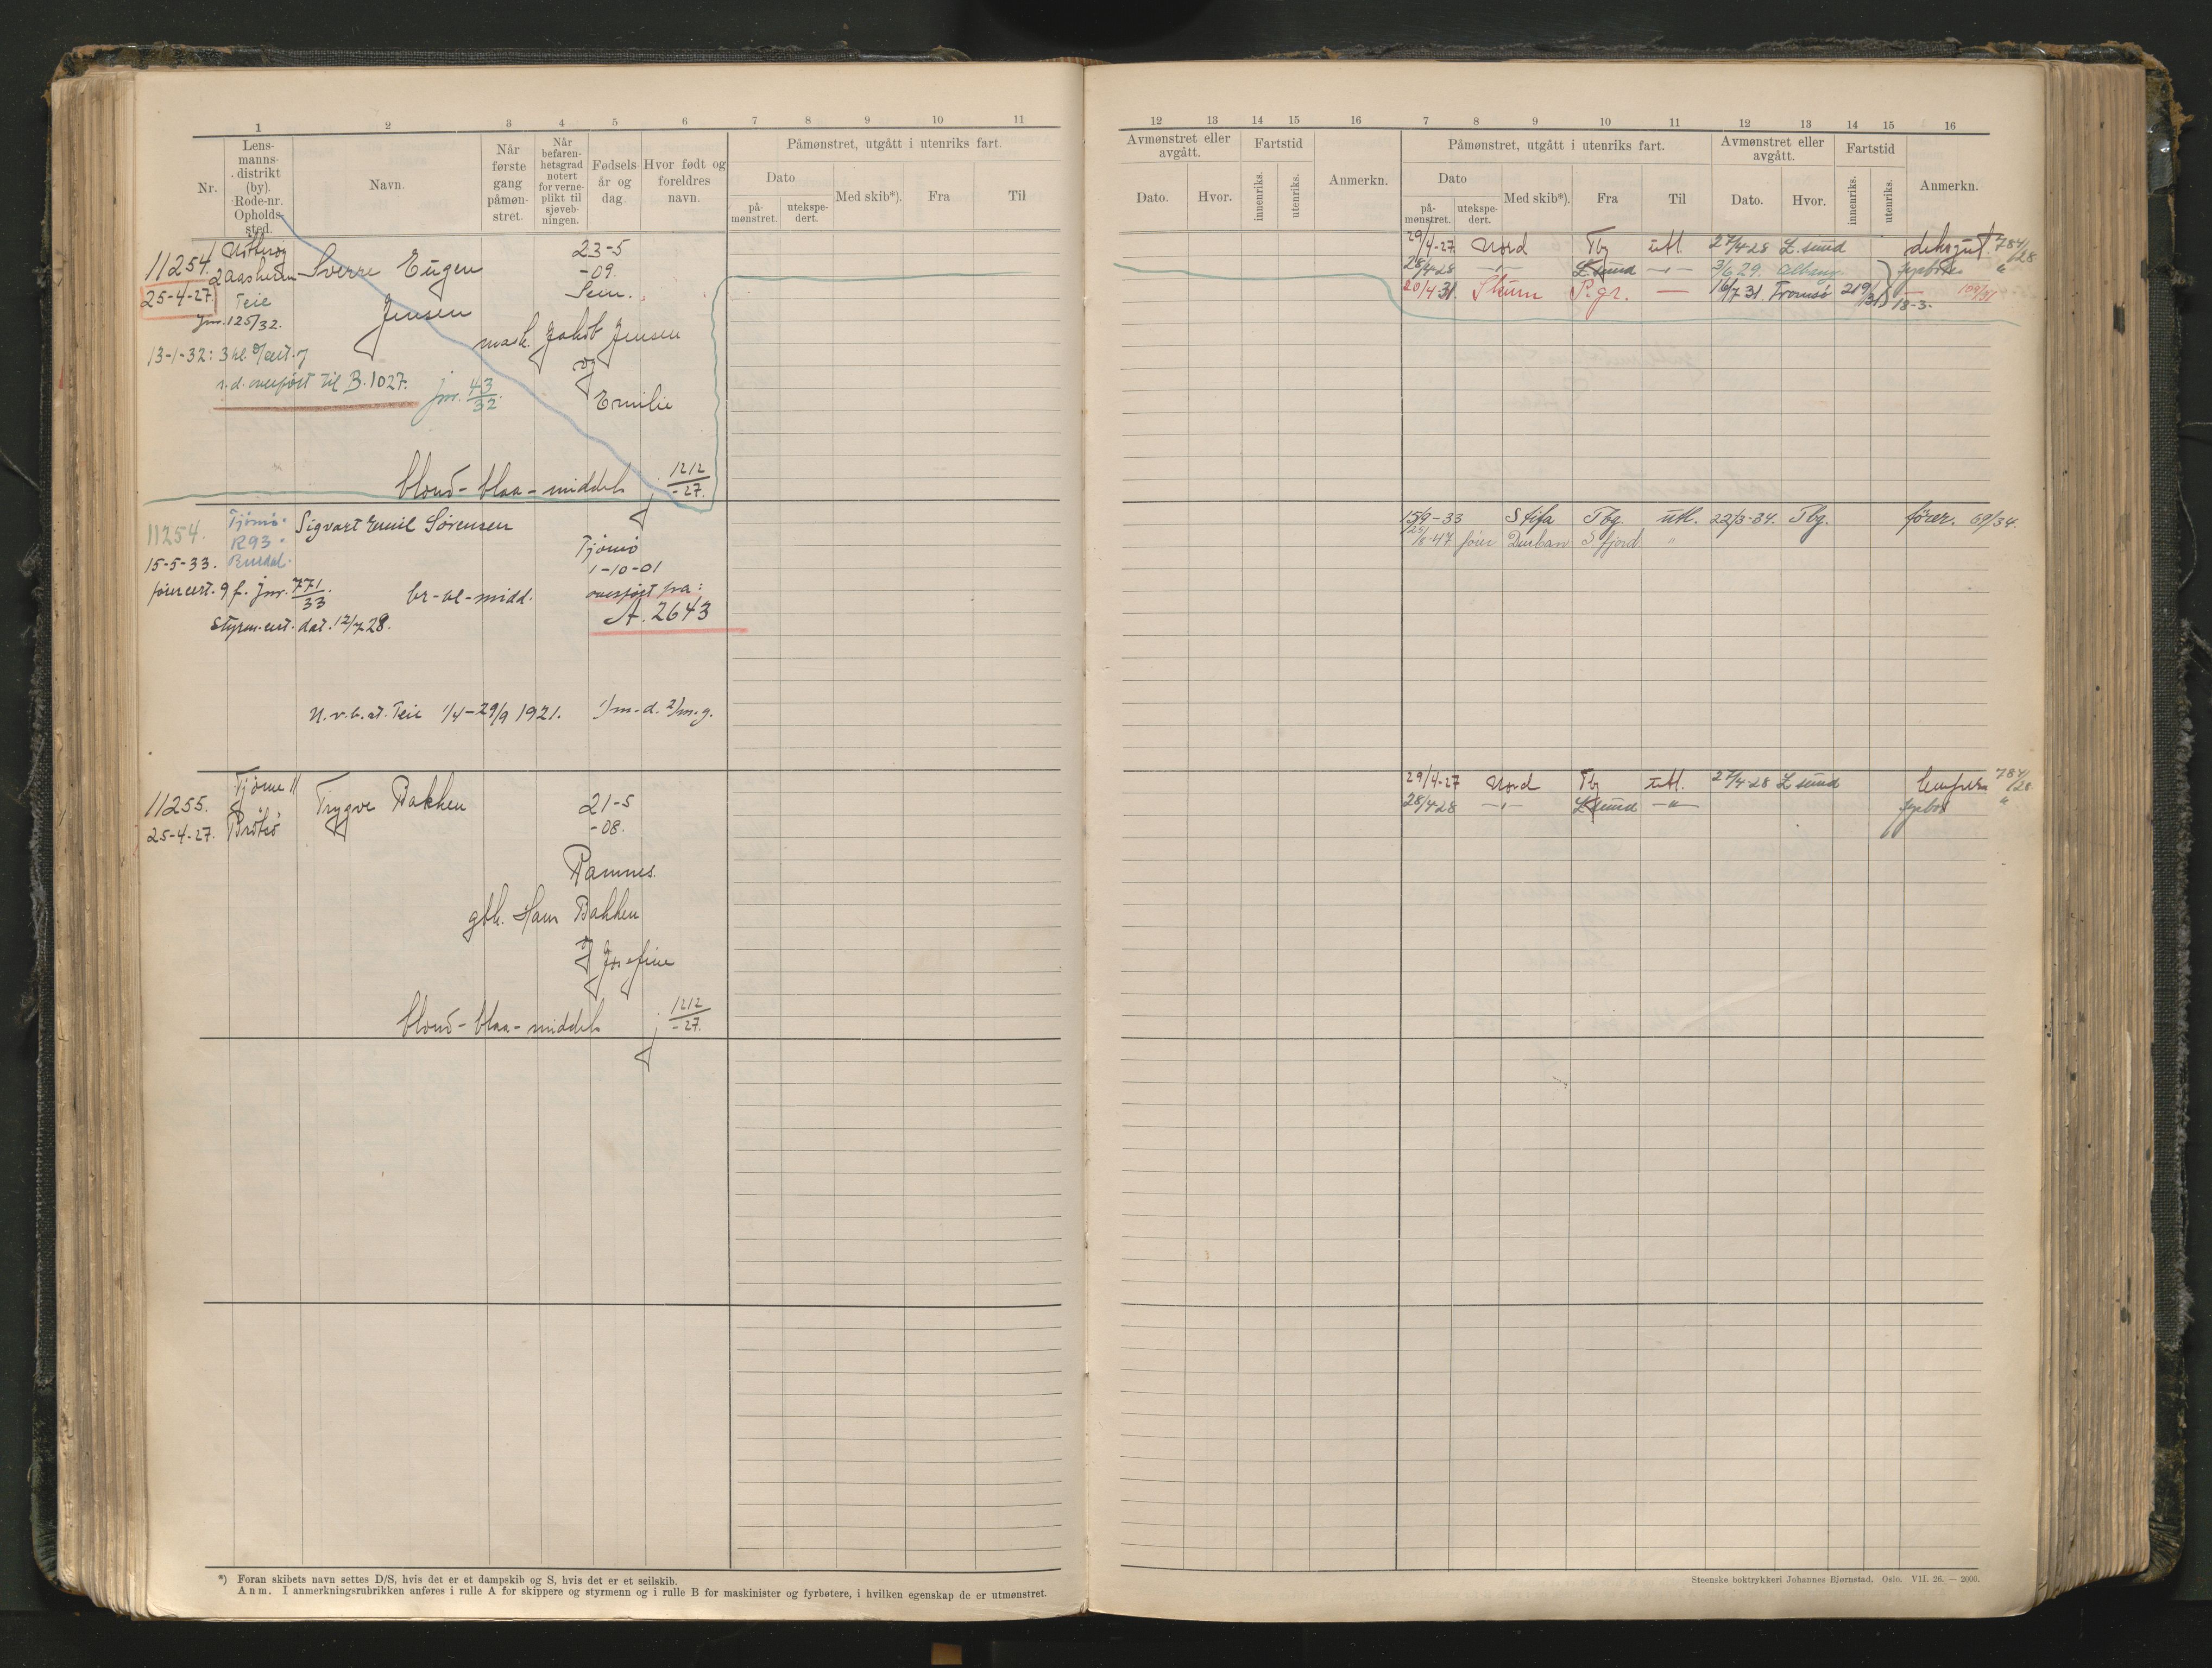 1 2 3 4 5 6 7 8 9 10 11
Nr.
Lens-
manns-
distrikt
(by).
Rode-nr.
Opholds-
sted.
Navn.
Når
første
gang
påmøn-
stret.
Når
befaren-
hetsgrad
notert
for verne-
plikt til
sjøveb-
ningen.
Fødsels-
år og
dag.
Hvor født og
foreldres
navn.
Påmønstret, utgått i utenriks fart.
Dato
på-
mønstret.
utekspe-
dert.
Med skib*).
Fra
Til
11254.
25-4-27.
2 Aasheim
Teie
Jnr. 125/32.
Sverre Eugen
Jensen
23-5
-09.
Sem.
mask. Jakob Jensen
og
Emilie
13-1-32: 3 kl.
s.d. overført til B. 1027.
jnr. 43/32.
blond - blaa - middels
j 1212/-27.
11254.
15-5-33.
Tjømø.
R93.
Burdal.
Sigvart Emil Sørensen
Tjømø
1-10-01
førercert. 9 f. jnr. 771/33.
br-bl-midd.
overført fra:
A. 2643
Styrm.cert. dat. 12/7 28.
U.v.b.at. Teie 1/4-29/9 1921. 1/m.d. 2/m.g.
11255.
25-4-27.
Tjøme 11
Brøtsø
Trygve Bakken
21-5
-08.
Ramnes.
gbr. Hans Bakken
og Josefine
blond - blaa - middels
j 1212/-27.
*) Foran skibets navn settes D/S, hvis det er et dampskib og S, hvis det er et seilskib.
Anm. I anmerkningsrubrikken anføres i rulle A for skippere og styrmenn og i rulle B for maskinister og fyrbøtere, i hvilken egenskap de er utmønstret.
12 13 14 15 16 7 8 9 10 11 12 13 14 15 16
Avmønstret eller
avgått.
Dato.
Hvor.
Fartstid
innenriks.
utenriks.
Anmerkn.
Påmønstret, utgått i utenriks fart.
Dato
på-
mønstret.
utekspe-
dert.
Med skib*).
Fra
Til
Avmønstret eller
avgått.
Dato.
Hvor.
Fartstid
innenriks.
utenriks.
Anmerkn.
29/4-27 Nord Tbg utl. 27/4-28 L.sund deksgut 784/28
28/4-28 -"- L.sund -"- 3/6 29. Albany. fyrbøt. "
20/4 31. Skum P.gr. — 16/7 31. Tromsø 219/31 18-3. — 109/31
15/9-33 Stifa Tbg. utl. 22/3-34. Tbg. fører. 69/34.
25/8-47 fører Durban S fjord "
29/4-27 Nord Tbg utl. 27/4-28 L sund lemper 784/28
28/4-28 -"- L sund -"- fyrbøt "
Steenske boktrykkeri Johannes Bjørnstad. Oslo. VII. 26. — 2000.